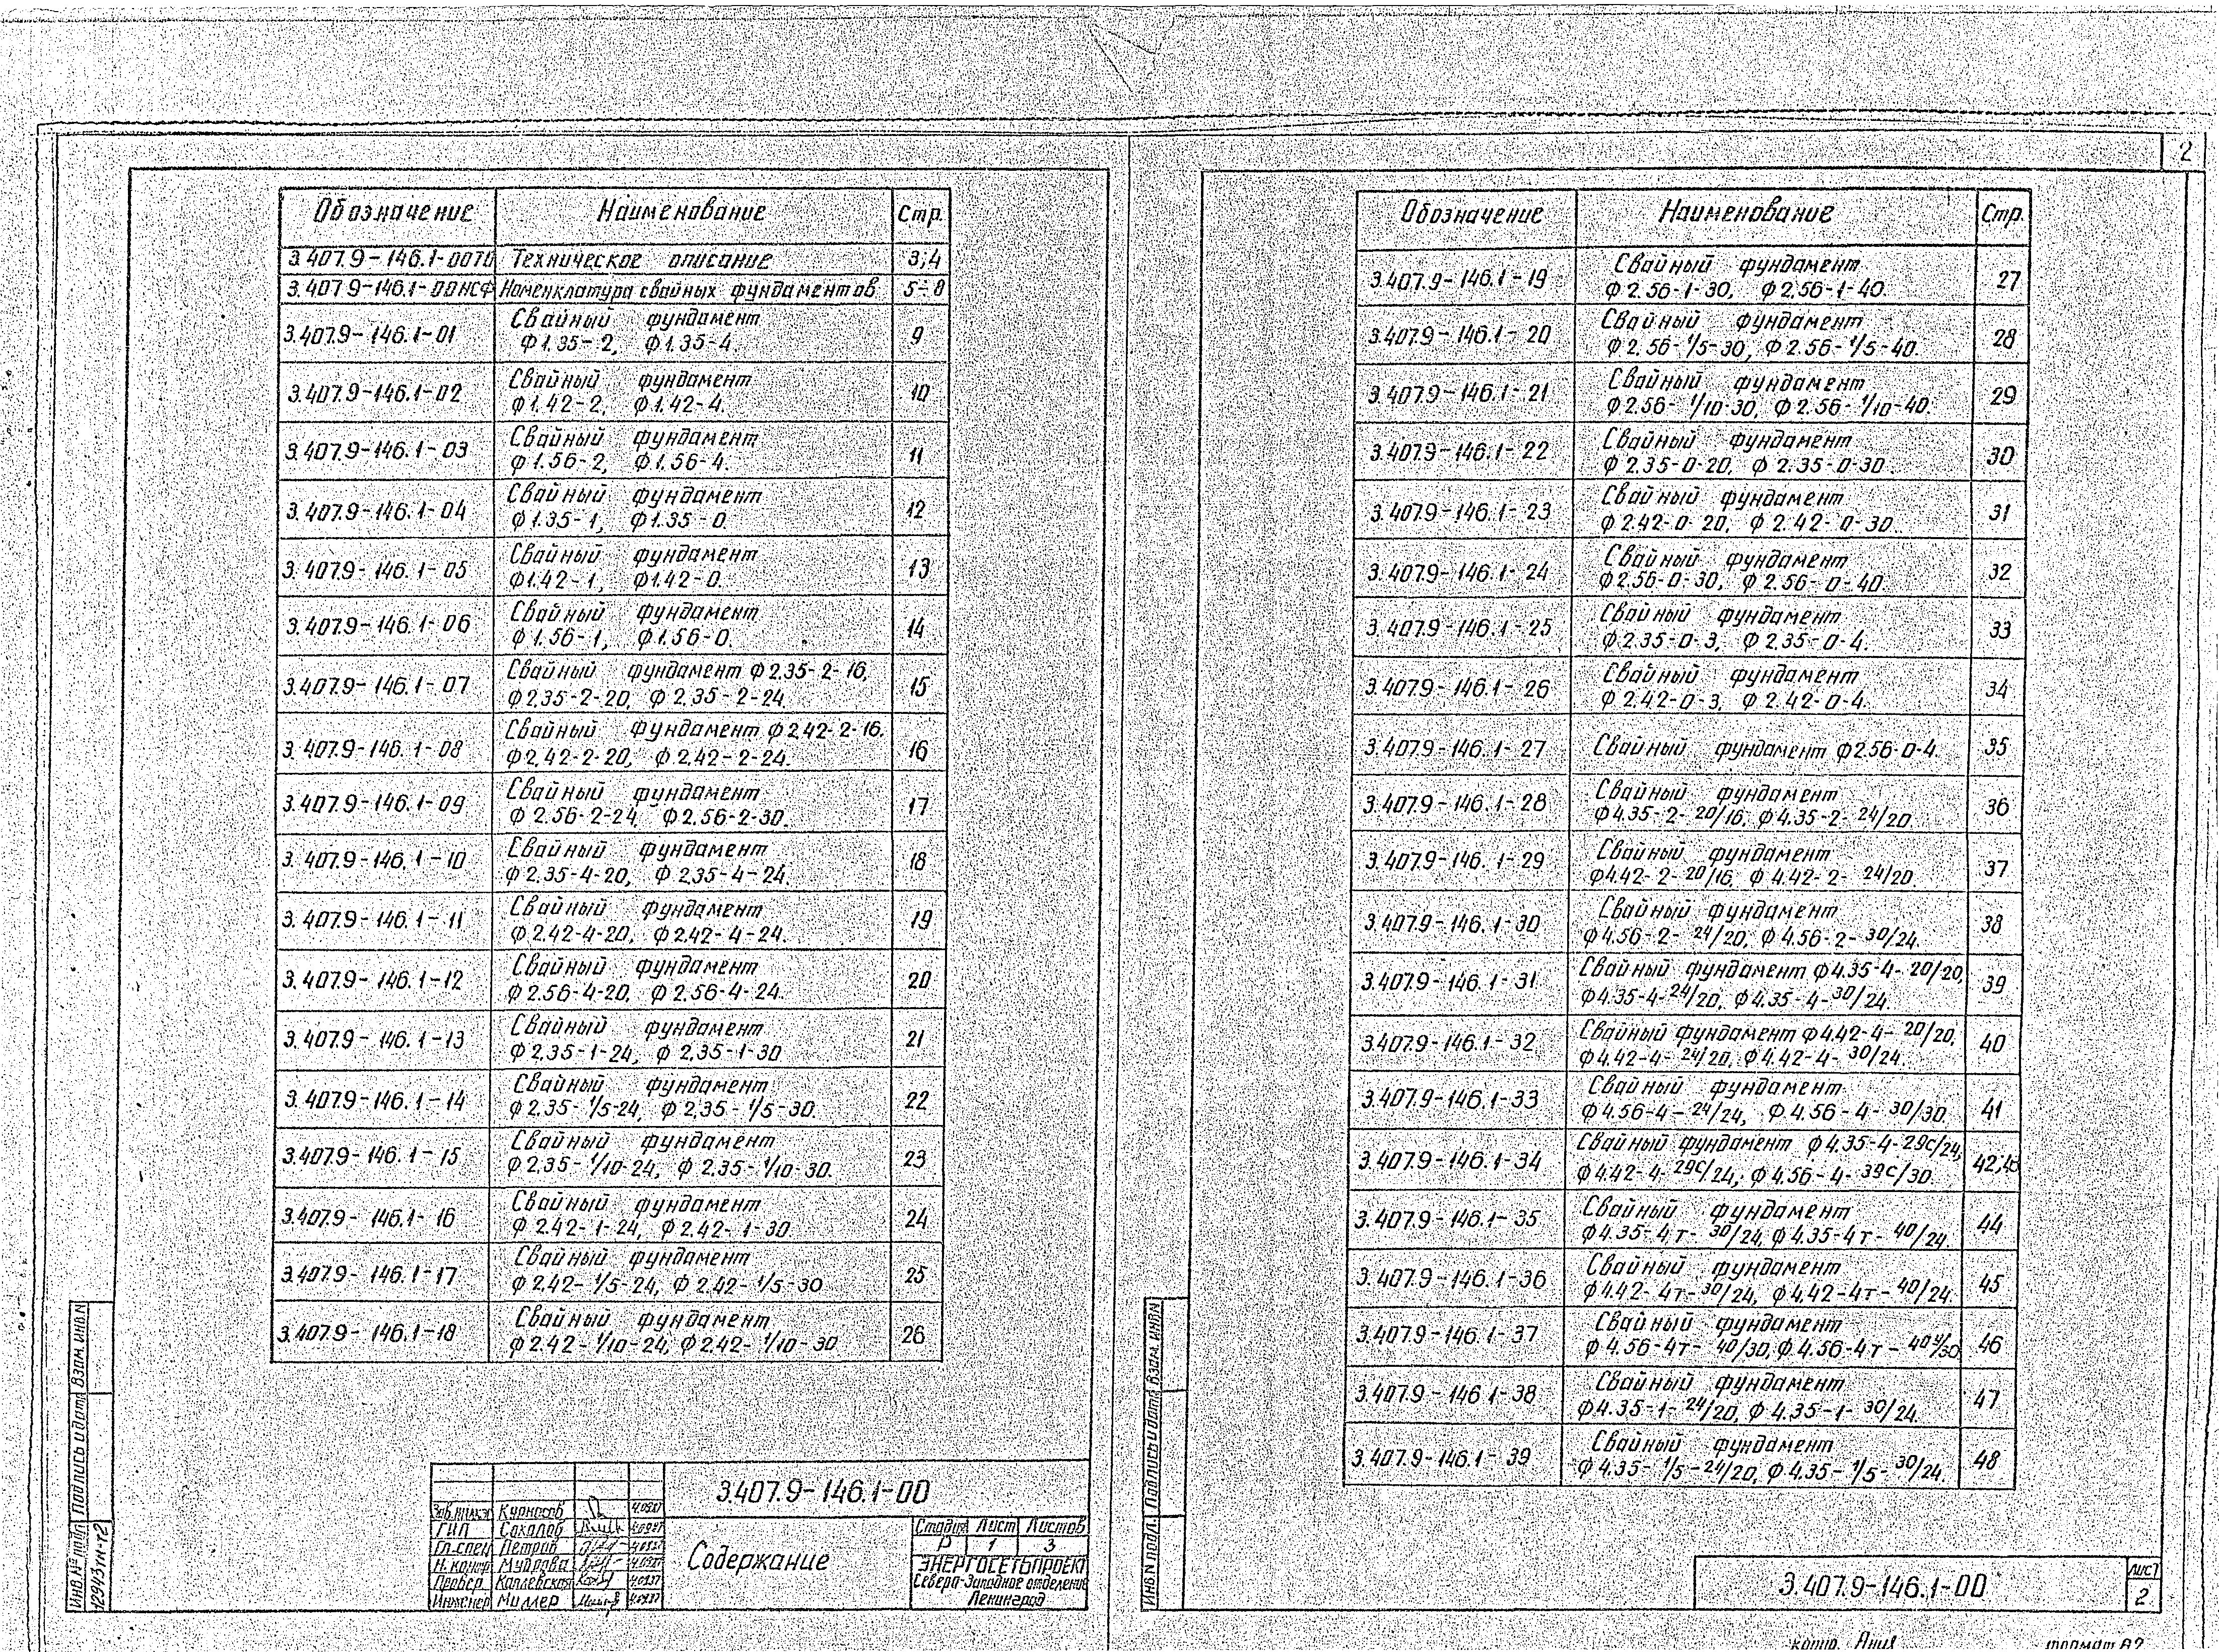 2
Обозначение Наименование Стр.
3.407.9-146.1-00ТО Техническое описание 3;4
3.407.9-146.1-00НСФ Номенклатура свайных фундаментов 5-8
3.407.9-146.1-01 Свайный фундамент 9
ф1.35-2, ф1.35-4.
3.407.9-146.1-02 Свайный фундамент 10
ф1.42-2, ф1.42-4.
3.407.9-146.1-03 Свайный фундамент 11
ф1.56-2, ф1.56-4.
3.407.9-146.1-04 Свайный фундамент 12
ф1.35-1, ф1.35-0.
3.407.9-146.1-05 Свайный фундамент 13
ф1.42-1, ф1.42-0.
3.407.9-146.1-06 Свайный фундамент 14
ф1.56-1, ф1.56-0.
3.407.9-146.1-07 Свайный фундамент ф2.35-2-16, 15
ф2.35-2-20, ф2.35-2-24.
3.407.9-146.1-08 Свайный фундамент ф2.42-2-16. 16
ф2.42-2-20, ф2.42-2-24.
3.407.9-146.1-09 Свайный фундамент 17
ф2.56-2-24, ф2.56-2-30.
3.407.9-146.1-10 Свайный фундамент 18
ф2.35-4-20, ф2.35-4-24.
3.407.9-146.1-11 Свайный фундамент 19
ф2.42-4-20, ф2.42-4-24.
3.407.9-146.1-12 Свайный фундамент 20
ф2.56-4-20, ф2.56-4-24.
3.407.9-146.1-13 Свайный фундамент 21
ф2.35-1-24, ф2.35-1-30
3.407.9-146.1-14 Свайный фундамент 22
ф2.35-1/5-24, ф2.35-1/5-30.
3.407.9-146.1-15 Свайный фундамент 23
ф2.35-1/10-24, ф2.35-1/10-30.
3.407.9-146.1-16 Свайный фундамент 24
ф2.42-1-24, ф2.42-1-30
3.407.9-146.1-17 Свайный фундамент 25
ф2.42-1/5-24, ф2.42-1/5-30
3.407.9-146.1-18 Свайный фундамент 26
ф2.42-1/10-24, ф2.42-1/10-30
3.407.9-146.1-00
Содержание
Курносов
ГИП Соколов
Гл.спец Петров
Н. контр Мудрова
Провер. Каплевская
Инженер Миллер
Стадия Лист Листов
Р 1 3
ЭНЕРГОСЕТЬПРОЕКТ
Северо-Западное отделение
Ленинград
Инв.№ подл Подпись и дата Взам. инв.N
12943тм-т2
Обозначение Наименование Стр.
3.407.9-146.1-19 Свайный фундамент 27
ф2.56-1-30, ф2.56-1-40.
3.407.9-146.1-20 Свайный фундамент 28
ф2.56-1/5-30, ф2.56-1/5-40.
3.407.9-146.1-21 Свайный фундамент 29
ф2.56-1/10-30, ф2.56-1/10-40.
3.407.9-146.1-22 Свайный фундамент 30
ф2.35-0-20, ф2.35-0-30.
3.407.9-146.1-23 Свайный фундамент 31
ф2.42-0-20, ф2.42-0-30.
3.407.9-146.1-24 Свайный фундамент 32
ф2.56-0-30, ф2.56-0-40.
3.407.9-146.1-25 Свайный фундамент 33
ф2.35-0-3, ф2.35-0-4.
3.407.9-146.1-26 Свайный фундамент 34
ф2.42-0-3, ф2.42-0-4.
3.407.9-146.1-27 Свайный фундамент ф2.56-0-4. 35
3.407.9-146.1-28 Свайный фундамент 36
ф4.35-2-20/16, ф4.35-2-24/20
3.407.9-146.1-29 Свайный фундамент 37
ф4.42-2-20/16, ф4.42-2-24/20
3.407.9-146.1-30 Свайный фундамент 38
ф4.56-2-24/20, ф4.56-2-30/24.
3.407.9-146.1-31 Свайный фундамент ф4.35-4-20/20, 39
ф4.35-4-24/20, ф4.35-4-30/24.
3.407.9-146.1-32 Свайный фундамент ф4.42-4-20/20, 40
ф4.42-4-24/20, ф4.42-4-30/24.
3.407.9-146.1-33 Свайный фундамент 41
ф4.56-4-24/24, ф4.56-4-30/30.
3.407.9-146.1-34 Свайный фундамент ф4.35-4-29с/24, 42,43
ф4.42-4-29с/24, ф4.56-4-39с/30.
3.407.9-146.1-35 Свайный фундамент 44
ф4.35-4т-30/24, ф4.35-4т-40/24.
3.407.9-146.1-36 Свайный фундамент 45
ф4.42-4т-30/24, ф4.42-4т-40/24.
3.407.9-146.1-37 Свайный фундамент 46
ф4.56-4т-40/30, ф4.56-4т-40у/30
3.407.9-146.1-38 Свайный фундамент 47
ф4.35-1-24/20, ф4.35-1-30/24.
3.407.9-146.1-39 Свайный фундамент 48
ф4.35-1/5-24/20, ф4.35-1/5-30/24.
Инв N подл. Подпись и дата Взам. инв N
3.407.9-146.1-00
Лист
2
формат А2